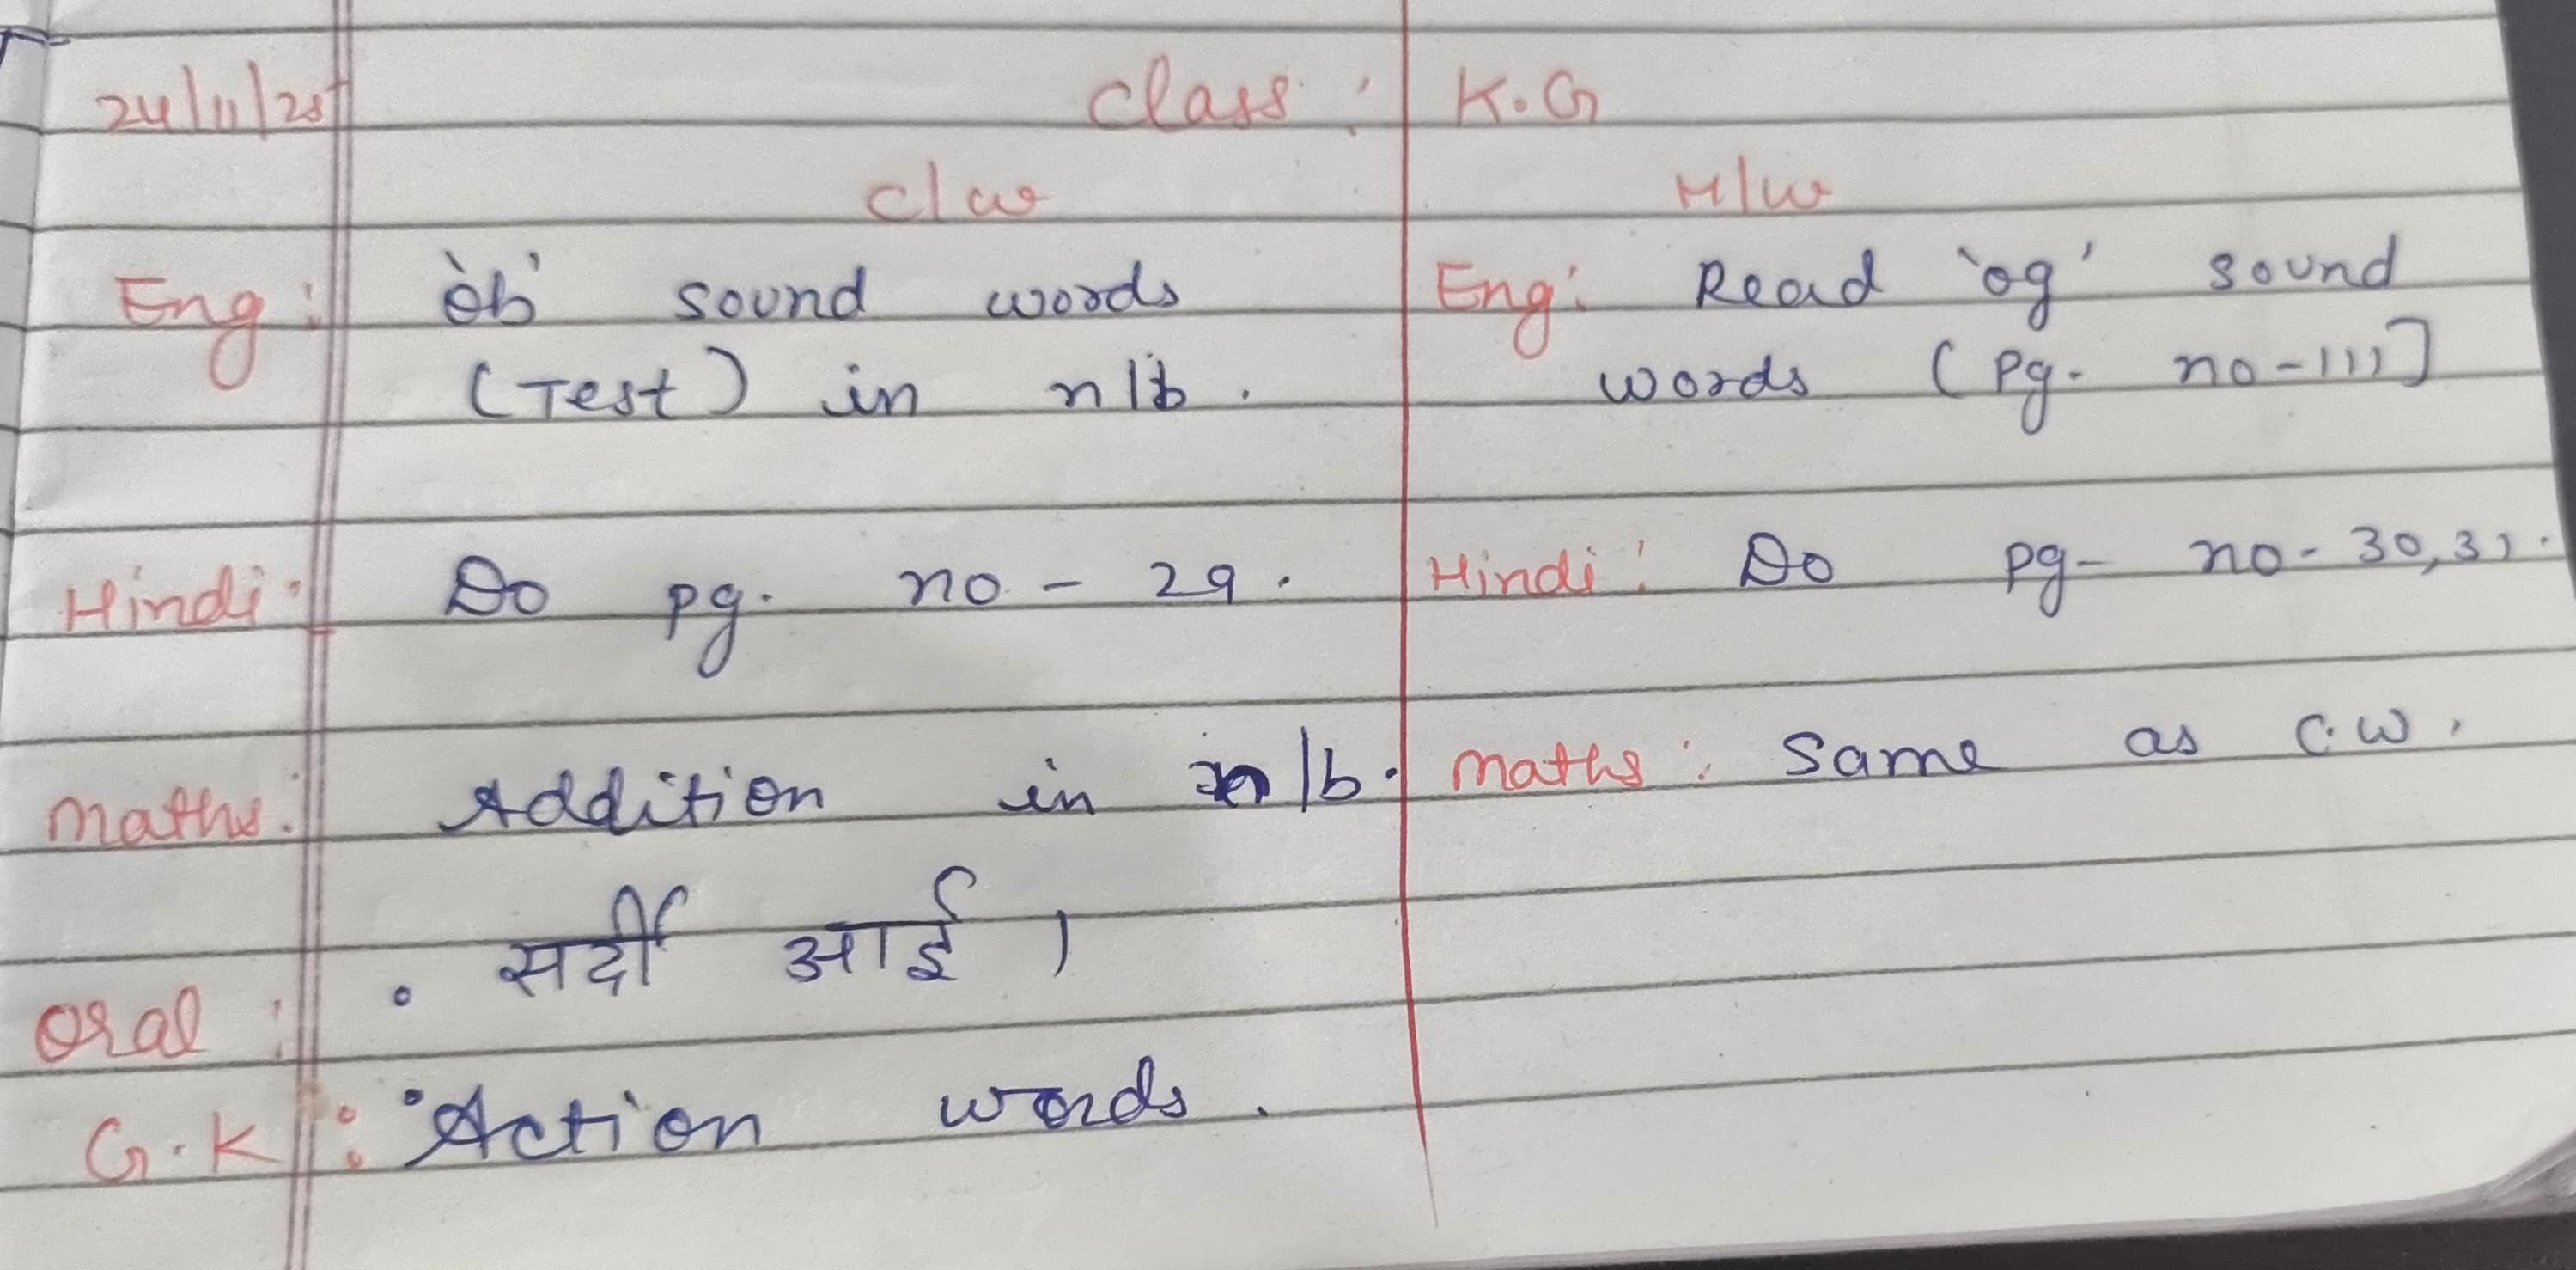 24/11/25 Class : K.G
C/w
Eng : 'ob' sound words
(Test) in n/b.
Hindi : Do pg. no - 29.
Maths : Addition in n/b.
Oral : • सर्दी आई ।
G.K : • Action words.
H/w
Eng : Read 'og' sound
words (Pg. no-111]
Hindi : Do pg- no- 30,31.
Maths : Same as C.W.